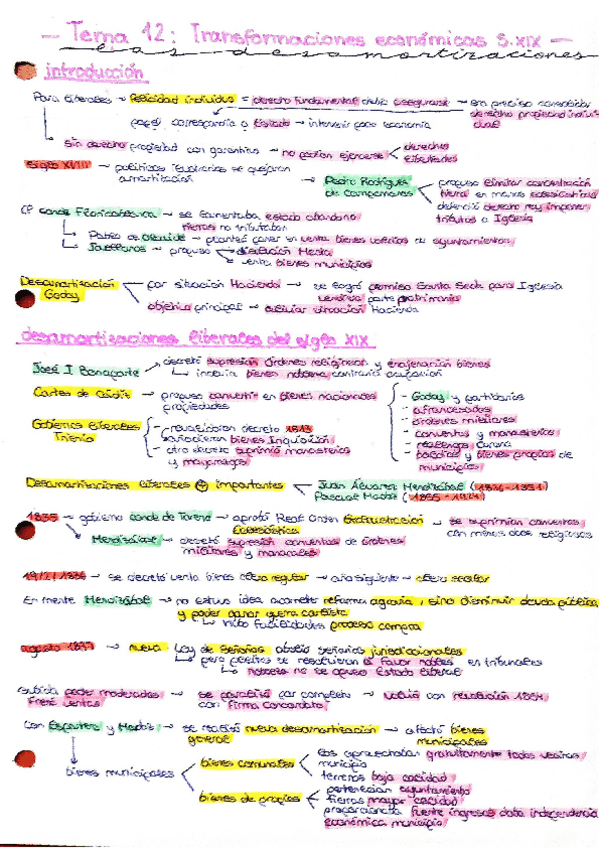 - Tema 12: Transformaciones económicas S.XIX -
las desamortizaciones
introducción
Para liberales → felicidad individuo = derecho fundamental debía asegurarse → era preciso consolidar
derecho propiedad individual
papel correspondía a Estado → intervenir poco economía
sin derecho propiedad con garantías → no podían ejercerse derechos
libertades
Siglo XVIII → políticos ilustrados se quejaron
amortización
Pedro Rodríguez
de Campomanes
propuso limitar concentración
tierra en manos eclesiásticas
defendió derecho rey imponer
tributos a Iglesia
conde Floridablanca → se lamentaba estado abandono
tierras no tributaban
Pablo de Olavide → planteó poner en venta bienes baldíos de ayuntamientos
Jovellanos → propuso disolución Mesta
venta bienes municipios
Desamortización
Godoy
por situación Hacienda → se logró permiso Santa Sede para Iglesia
vendiera parte patrimonio
objetivo principal → aliviar situación Hacienda
desamortizaciones liberales del siglo XIX
José I Bonaparte
decretó supresión órdenes religiosas y enajenación bienes
incluía bienes nobleza contrarios ocupación
Cortes de Cádiz → propuso convertir en bienes nacionales
propiedades
- Godoy y partidarios
- afrancesados
- órdenes militares
- conventos y monasterios
- realengos Corona
- baldíos y bienes propios de
municipios
Gobiernos liberales
Trienio
- revalidaron decreto 1813
bienes Inquisición
- otro decreto suprimió monasterios
y mayorazgos
Desamortizaciones liberales + importantes
Juan Álvarez Mendizábal (1836-1851)
Pascual Madoz (1855-1924)
1835 → gobierno conde de Toreno → aprobó Real Orden Exclaustración
Eclesiástica
→ se suprimían conventos
con menos doce religiosos
Mendizábal → decretó supresión conventos de órdenes
militares y monacales
19/2/1836 → se decretó venta bienes clero regular → año siguiente → clero secular
En mente Mendizábal → no estuvo idea acometer reforma agraria, sino disminuir deuda pública,
y poder ganar guerra carlista
↳ hubo facilidades proceso compra
agosto 1837 → nueva Ley de Señoríos abolió señoríos jurisdiccionales
↳ pero pleitos se resolvieron a favor nobles en tribunales
↳ nobleza no se opuso Estado liberal
subida poder moderados
frenó ventas
→ se paralizó por completo
con firma Concordato
→ volvió con revolución 1854
Con Espartero y Madoz → se realizó nueva desamortización
general
→ afectó bienes
municipales
bienes municipales
bienes comunales
los aprovechaban gratuitamente todos vecinos
municipio
terrenos baja calidad
bienes de propios
pertenecían ayuntamiento
tierras mayor calidad
proporcionaba fuente ingresos daba independencia
económica municipio